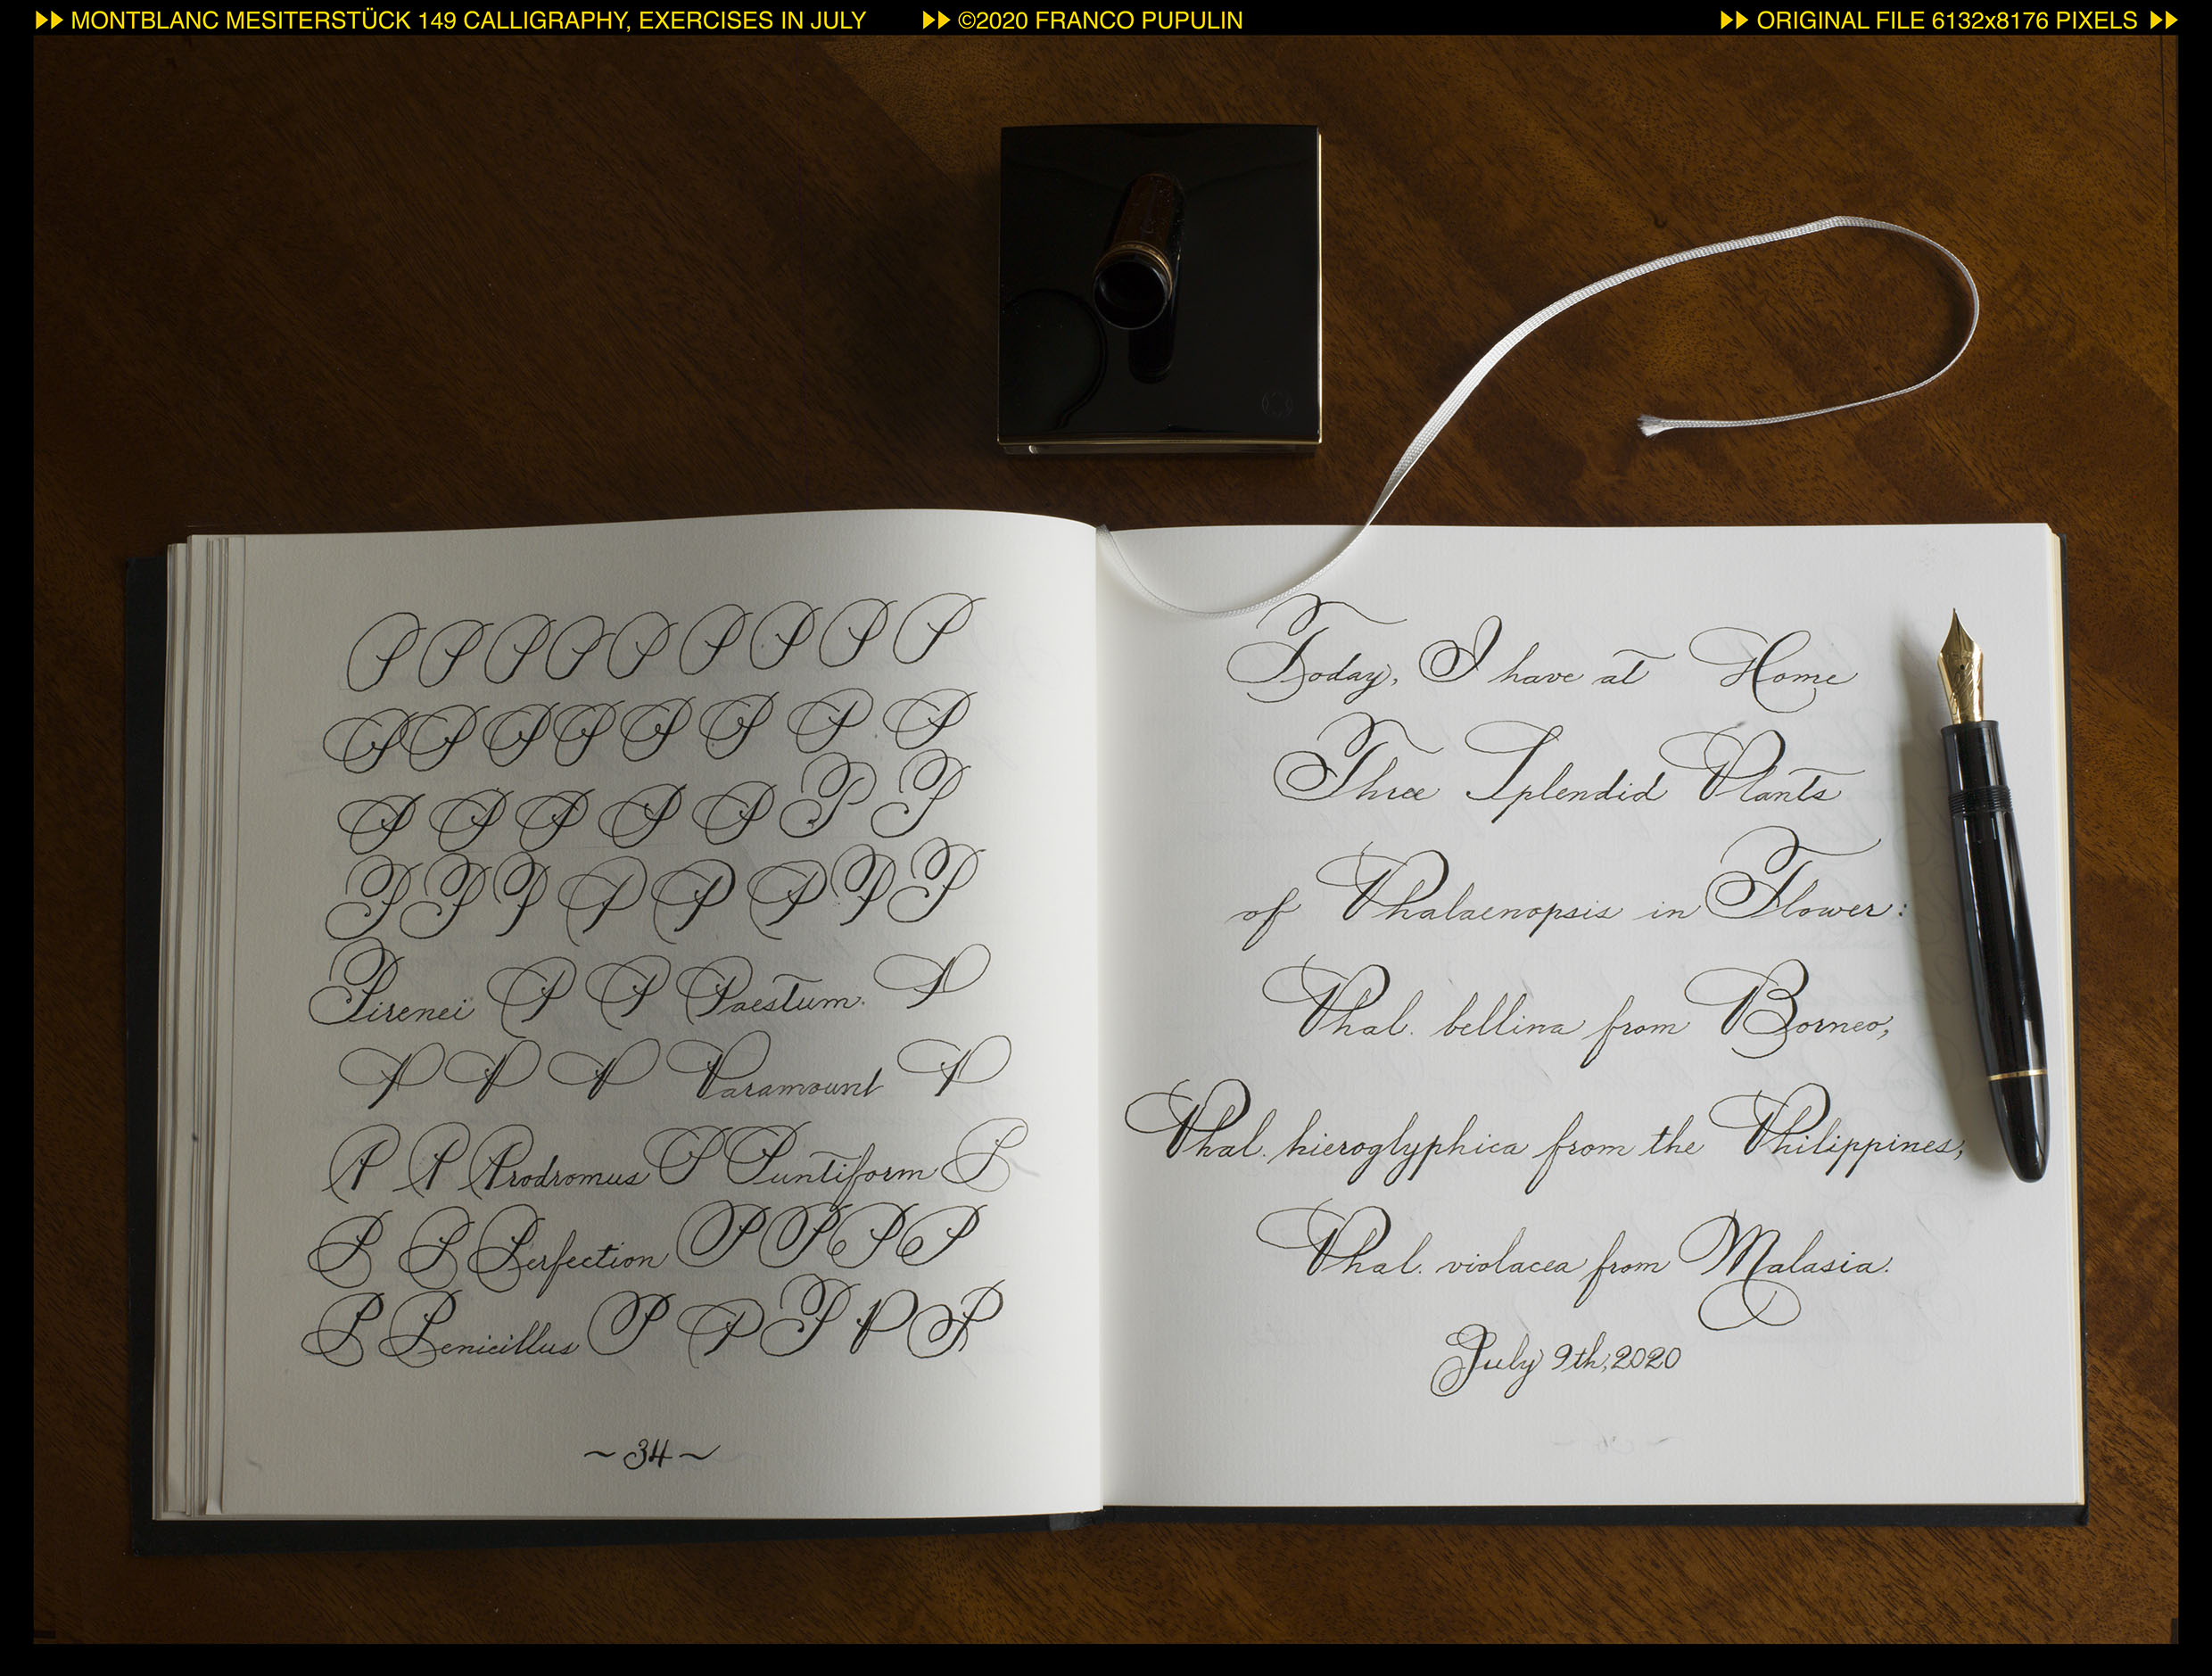 MONTBLANC MESITERSTÜCK 149 CALLIGRAPHY, EXERCISES IN JULY ©2020 FRANCO PUPULIN ORIGINAL FILE 6132x8176 PIXELS
P P P P P P P P P
P P P P P P P P
P P P P P P P
P P P P P P P P
Pirenei P P Paestum. P
P P P Paramount P
P P Prodromus P Puntiform P
P P Perfection P P P P
P Penicillus P P P P P
~ 34 ~
Today, I have at Home
Three Splendid Plants
of Phalaenopsis in Flower:
Phal. bellina from Borneo,
Phal. hieroglyphica from the Philippines,
Phal. violacea from Malasia.
July 9th, 2020